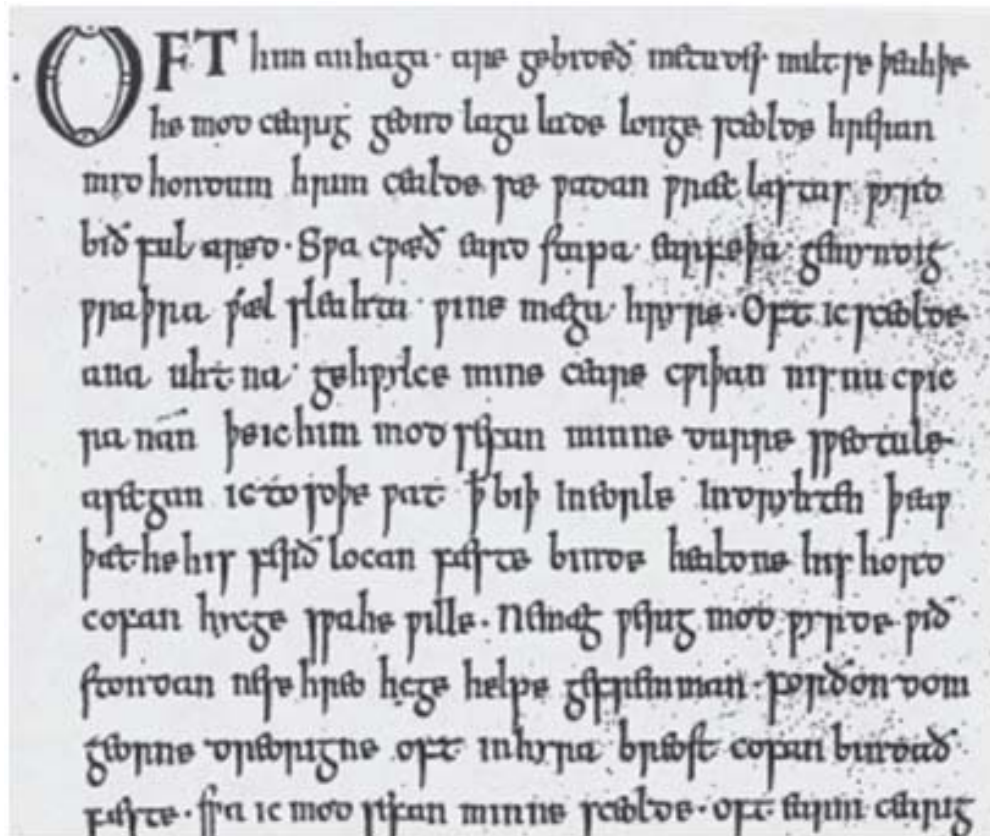 OFT him anhaga · are gebideð metudes miltse þeahþe
he mod cearig geond lagu lade longe sceolde hreran
mid hondum hrim cealde sæ ƿadan ƿræc lastas ƿyrd
bið ful aræd · Sƿa cƿæð eard stapa · earfeþa gemyndig
ƿraþra ƿæl sleahta · ƿine mæga · hryre · Oft ic sceolde
ana uhtna gehƿylce mine ceare cƿiþan nis nu cƿic
ra nán þe ic him mod sefan minne durre sƿeotule
asecgan ic to soþe ƿat ꝥ biþ Ineorle Indryhten þeaƿ
þæt he his ferð locan fæste binde healdne his hord
cofan hycge sƿa he ƿille · Ne mæg ƿerig mod ƿyrde ƿið
stondan ne se hreo hyge helpe gefremman · fordon dom
georne dreorigne oft in hyra breost cofan bindað
fæste · sƿa ic mod sefan minne sceolde · oft earm cearig